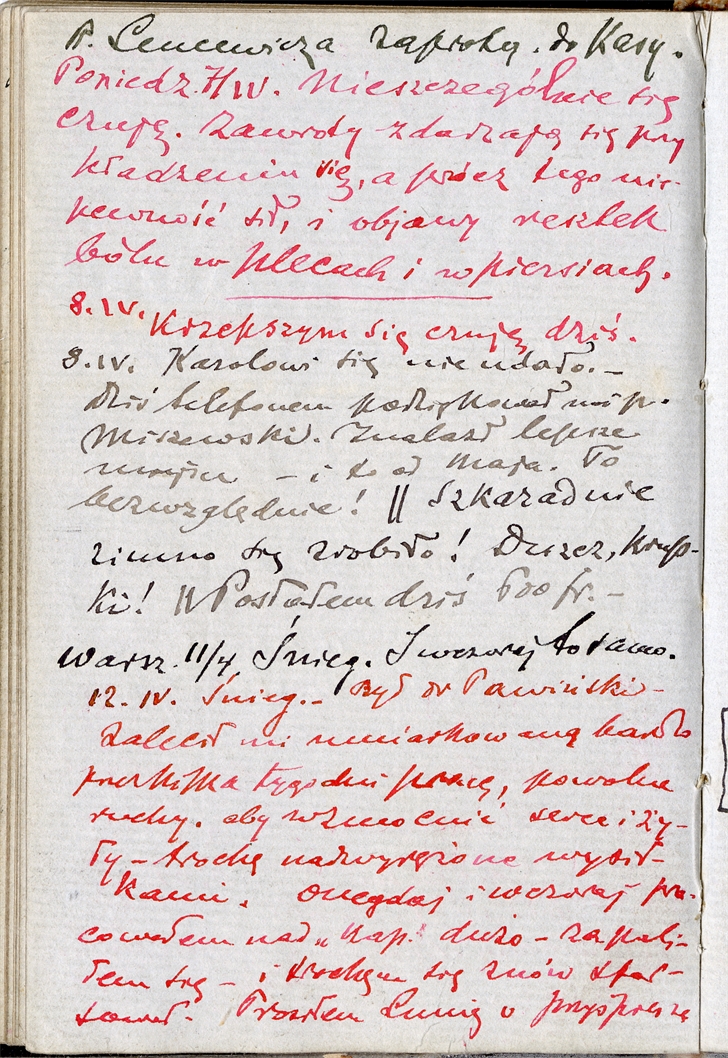 P. Lencewicza zapisky. do Kasy.
Poniedz. 7/IV. Nieszczególnie się
czuję. Zawroty zdarzają się przy
kładzeniu się, a prócz tego nie-
pewność sił, i objawy resztek
bólu w plecach i w piersiach.
8.IV. Krzepszym się czuję dziś.
8.IV. Karolowi się nie udało. –
Dziś telefonem podziękował mi p.
Miszewski. Znalazł lepsze
– i to od Maja. To
bezwzględnie! || Szkaradnie
zimno się zrobiło! Deszcz, krup-
ki! || Posłałem dziś 600 fr. –
Warsz. 11/4 Śnieg. I wczoraj to samo.
12. IV. Śnieg. – Był dr Pawiński –
Zalecił mi umiarkowaną bardzo
przez kilka tygodni pracę, powolne
ruchy. aby wzmocnić serce i ży-
ły – trochę nadwyrężone wysił-
kami. Onegdaj i wczoraj pra-
cowałem nad „Nap." dużo – zapali-
łem się – i trochęm się znów sfat-
Prosiłem Lunię o przyśpiesze